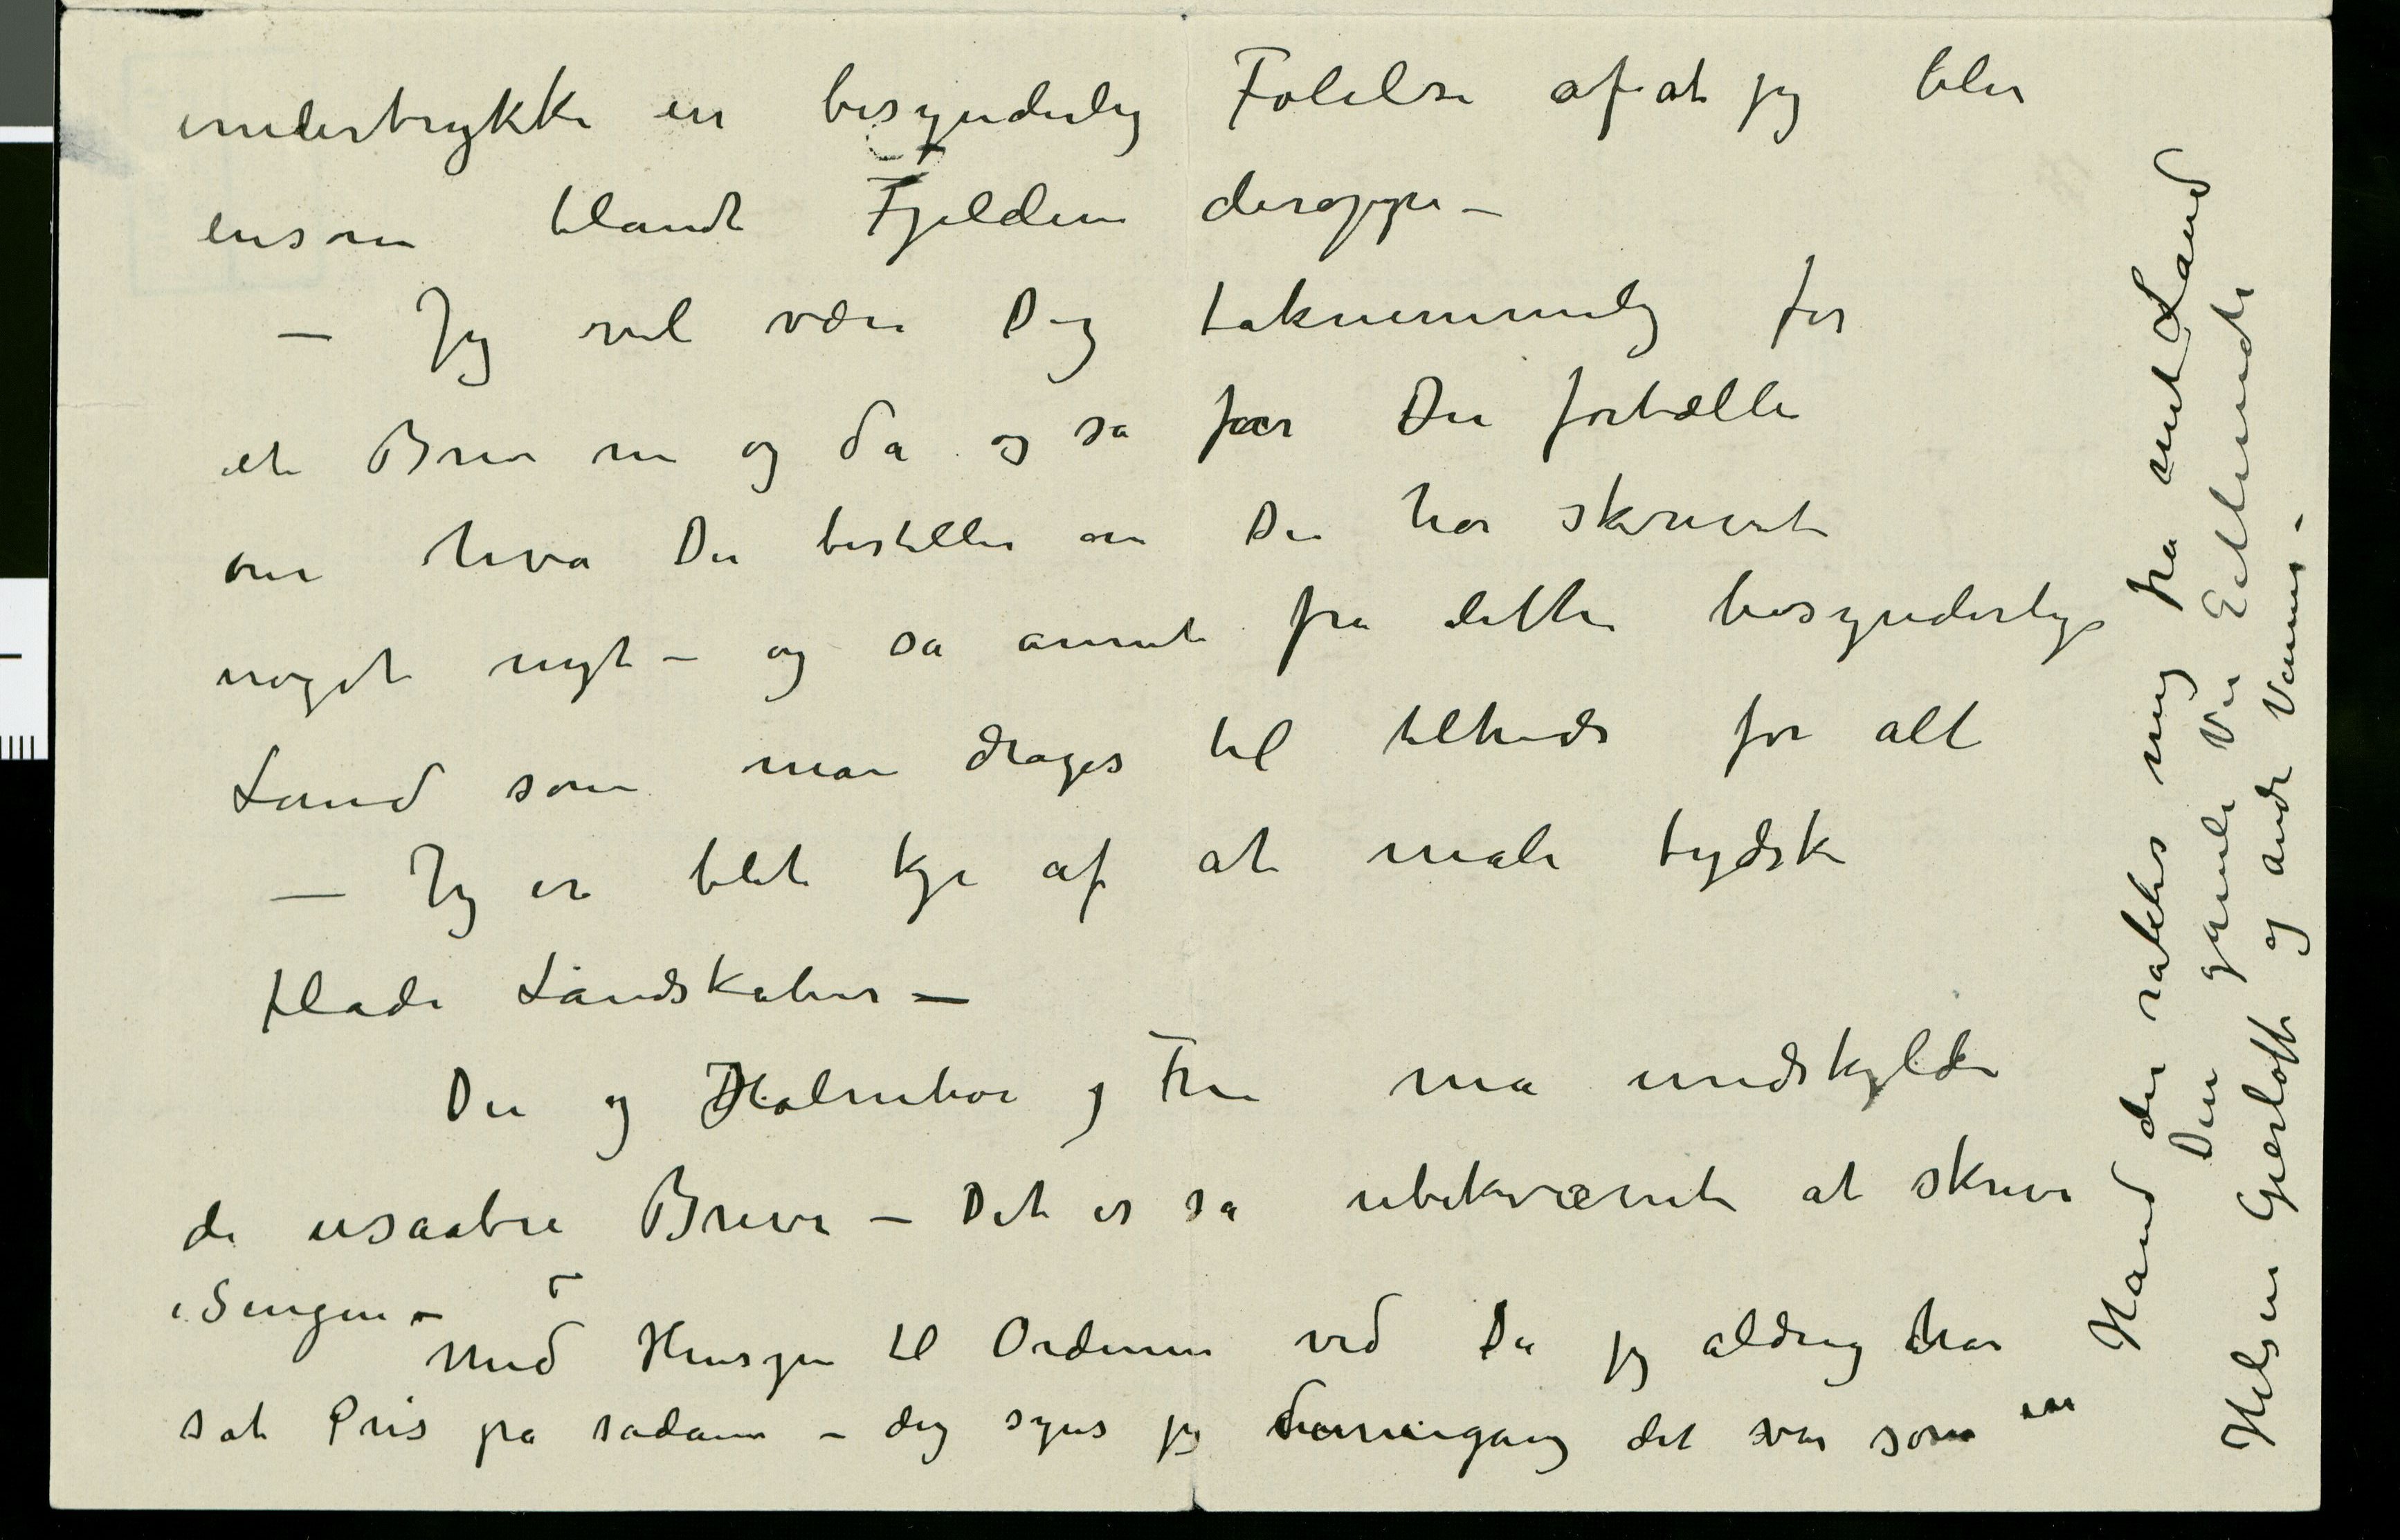 undertrykke en besynderlig Følelse af at jeg blir
ensom blandt Fjeldene deroppe –
– Jeg vil være Dig taknemmelig for
et Brev nu og da og så får Du fortælle
om hva Du bestiller om Du har skrevet
noget nyt – og så annet fra dette besynderlige
Land som man drages til tiltrods for alt
– Jeg er blet kje af at male tydske
flade Landskaber –
Du og Holmboe og Fru må undskylde
de usaabre Breve – Det er så ubekvæmt at skrive
i Sengen –
Med Hensyn til Ordenen ved Du jeg aldrig har
sat Pris på sådanne – dog synes jeg dennegang det var som en
Hand der raktes mig fra mit Land
Din gamle Ven E d Munch
Hilsen Gierløff og andre Venner. –